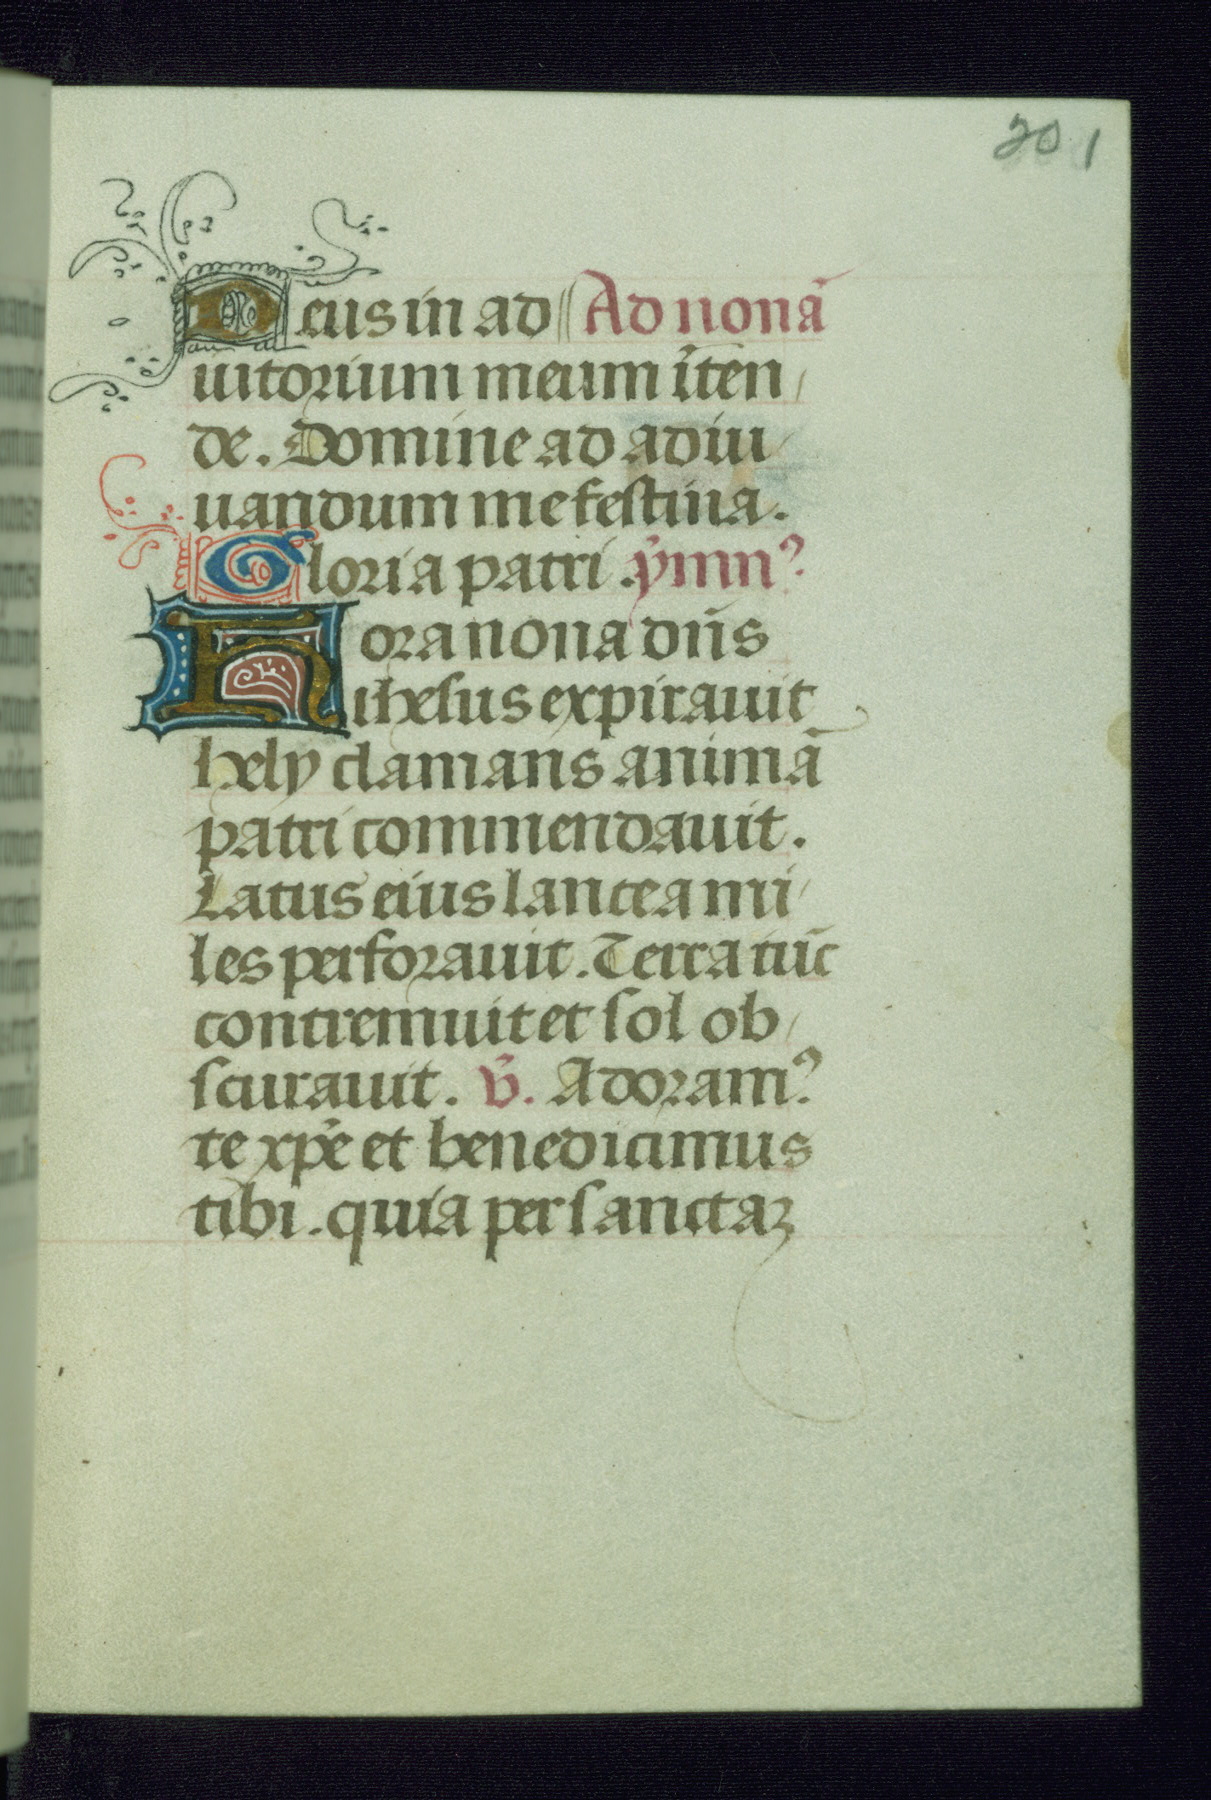 201
Deus in ad Ad nonā
iutorium meum īten
de. Domine ad adiu
uandum me festina.
Gloria patri. ẏmnꝰ
Hora nona dn̄s
ihesus expirauit
hely clamans animā
patri commendauit.
Latus eius lancea mi
les perforauit. Terra tūc
contremuit et sol ob
scurauit. v̄. Adoramꝰ
te xp̄e et benedicimus
tibi. quia per sanctaꝫ